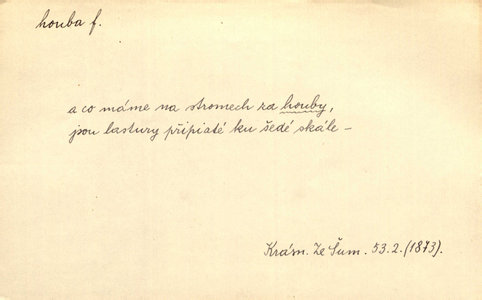 houba f.
a co máme na stromech za houby,
jsou lastury připiaté ku šedé skále —
Krám. Ze Šum. 53.2. (1873).